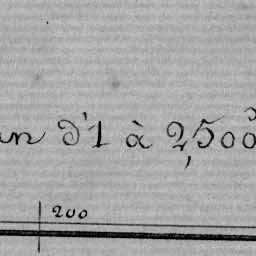 d'1 à 2,500
200